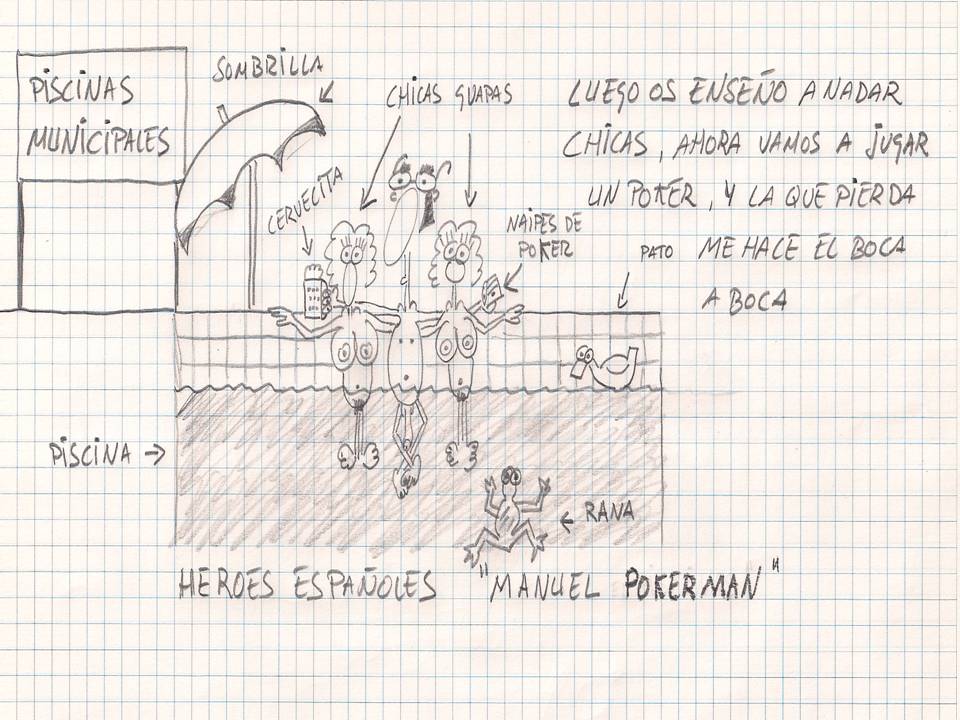 PISCINAS
MUNICIPALES
SOMBRILLA
CHICAS GUAPAS
LUEGO OS ENSEÑO A NADAR
CHICAS, AHORA VAMOS A JUGAR
UN POKER, Y LA QUE PIERDA
ME HACE EL BOCA
A BOCA
CERVECITA
NAIPES DE
POKER
PATO
PISCINA
RANA
HEROES ESPAÑOLES "MANUEL POKERMAN"